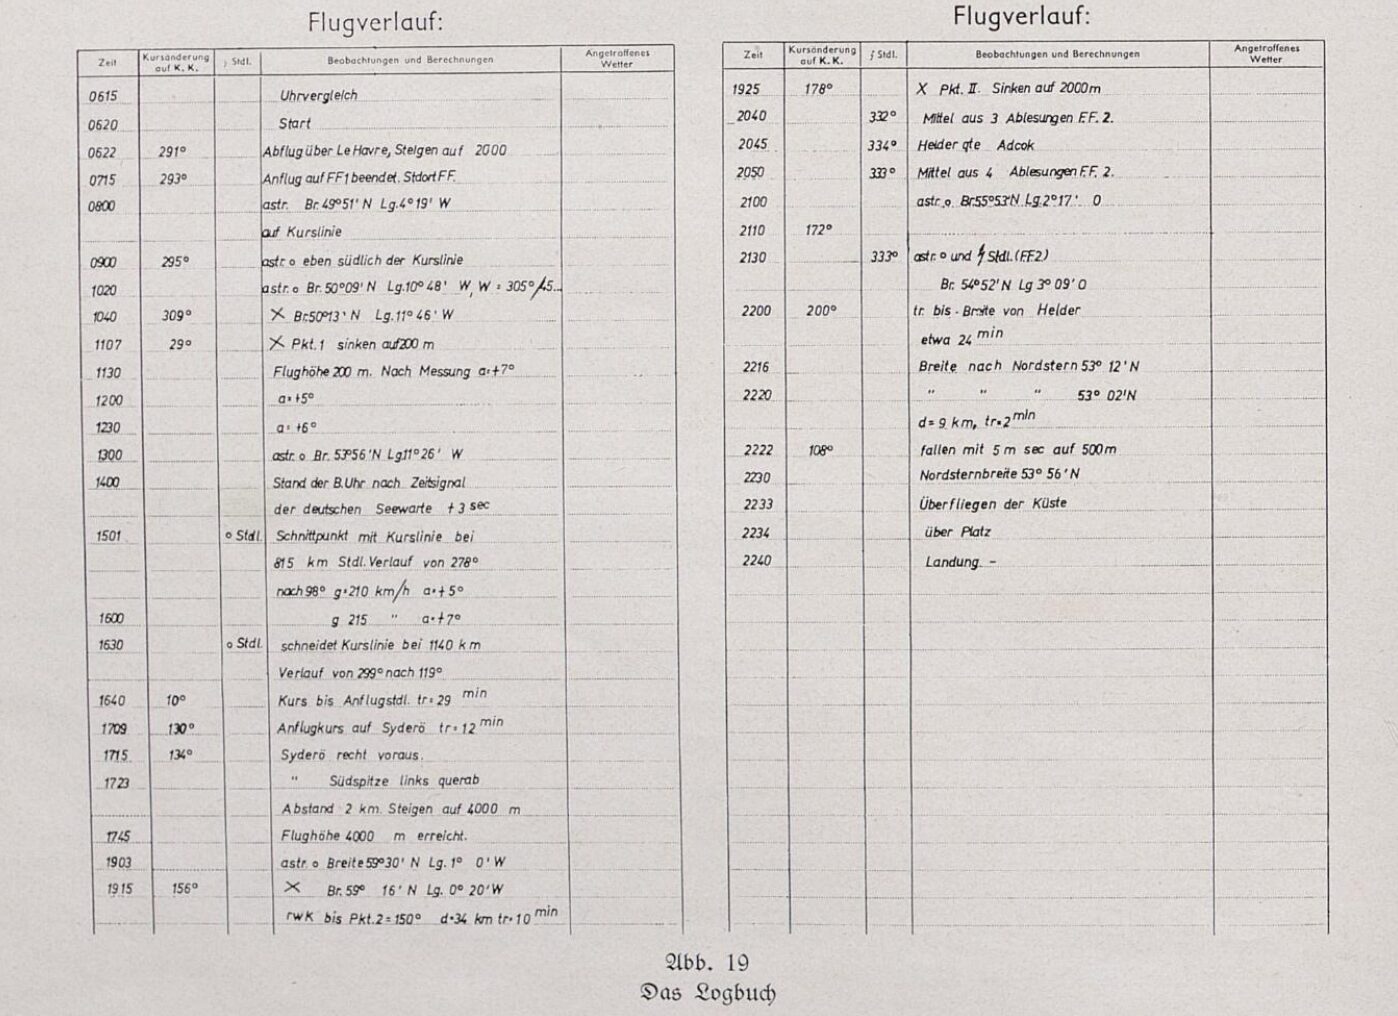 Flugverlauf:
Zeit Kursänderung auf K. K. Stdl. Beobachtungen und Berechnungen Angetroffenes Wetter
0615 Uhrvergleich
0620 Start
0622 291° Abflug über Le Havre, Steigen auf 2000
0715 293° Anflug auf FF1 beendet. Stdort FF.
0800 astr. Br. 49°51' N Lg. 4°19' W
auf Kurslinie
0900 295° astr. o eben südlich der Kurslinie
1020 astr. o Br. 50°09' N Lg. 10°48' W, W = 305°/45
1040 309° X Br. 50°13' N Lg. 11°46' W
1107 29° X Pkt. 1 sinken auf 200 m
1130 Flughöhe 200 m. Nach Messung a=+7°
1200 a=+5°
1230 a=+6°
1300 astr. o Br. 53°56' N Lg 11°26' W
1400 Stand der B.Uhr nach Zeitsignal
der deutschen Seewarte +3 sec
1501 o Stdl. Schnittpunkt mit Kurslinie bei
815 km Stdl. Verlauf von 278°
nach 98° g=210 km/h a=+5°
1600 g 215 " a=+7°
1630 o Stdl. schneidet Kurslinie bei 1140 km
Verlauf von 299° nach 119°
1640 10° Kurs bis Anflugstdl. tr=29 min
1709 130° Anflugkurs auf Syderö tr=12 min
1715 134° Syderö recht voraus.
1723 " Südspitze links querab
Abstand 2 km. Steigen auf 4000 m
1745 Flughöhe 4000 m erreicht.
1903 astr. o Breite 59°30' N Lg. 1° 0' W
1915 156° X Br. 59° 16' N Lg. 0° 20' W
rwK bis Pkt. 2=150° d=34 km tr=10 min
Flugverlauf:
Zeit Kursänderung auf K. K. Stdl. Beobachtungen und Berechnungen Angetroffenes Wetter
1925 178° X Pkt. II. Sinken auf 2000 m
2040 332° Mittel aus 3 Ablesungen F.F. 2.
2045 334° Helder qte Adcok
2050 333° Mittel aus 4 Ablesungen F.F. 2.
2100 astr. o Br. 55°53' N Lg. 2°17' O
2110 172°
2130 333° astr. o und Stdl. (FF2)
Br. 54°52' N Lg 3°09' O
2200 200° tr. bis - Breite von Helder
etwa 24 min
2216 Breite nach Nordstern 53° 12' N
2220 " " " 53° 02' N
d=9 km, tr=2 min
2222 108° fallen mit 5 m sec auf 500 m
2230 Nordsternbreite 53° 56' N
2233 Überfliegen der Küste
2234 über Platz
2240 Landung. –
Abb. 19
Das Logbuch